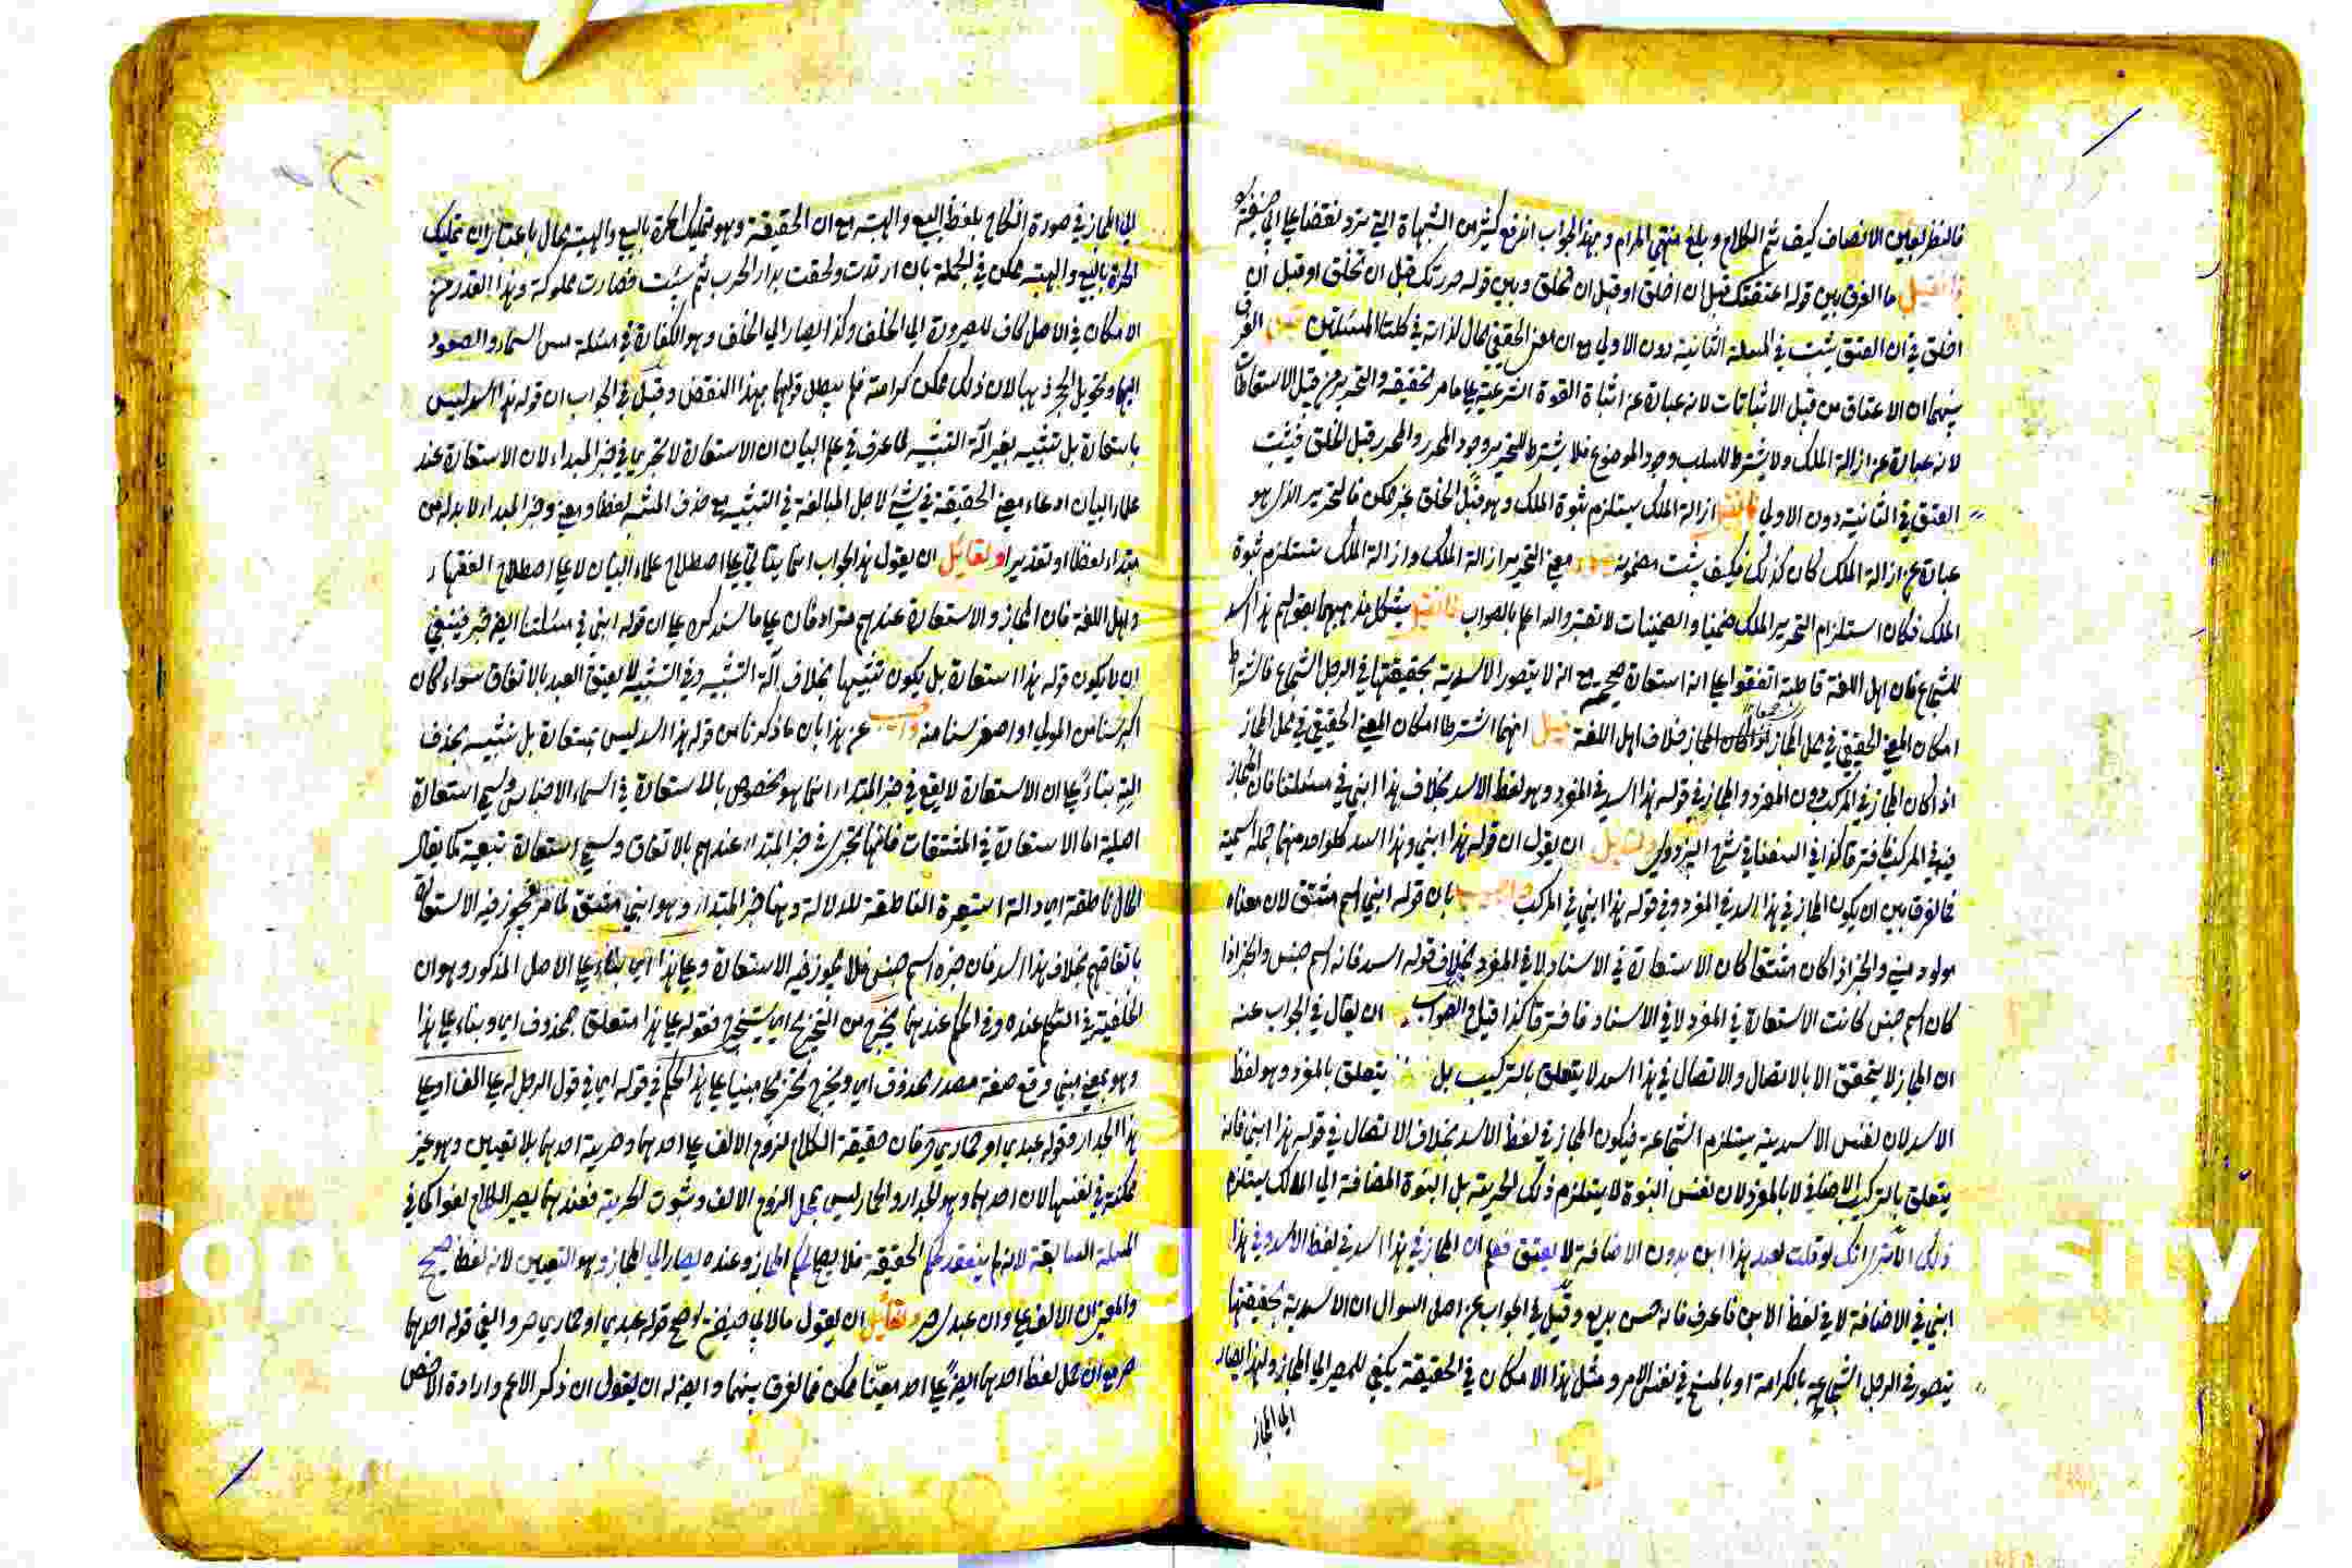 فالنظر بعين الانصاف كيف تم الكلام وبلغ منتهي المرام وبهذا الجواب اندفع كثير من الشبهاة التي ترد نقضا علي ابي حنيفة
فان قيل ما الفرق بين قوله اعتقتك قبل ان اخلق او قبل ان تخلق وبين قوله حررتك قبل ان تخلق او قبل ان
اخلق في ان العتق يثبت في المسلة الثانية دون الاولي مع ان المعني الحقيقي محال لذاته في كلتا المسئلتين الفرق
بينهما ان الاعتاق من قبل الاثباتات لانه عبارة عن اثباة القوة الشرعية علي ما مر تحقيقه والتحرير من قبل الاسقاطات
لانه عبارة عن ازالة الملك ولا يشترط للسلب وجود الموضوع فلا يشترط للتحرير وجود المحرر والمحرر قبل الخلق فيثبت
العتق في الثانية دون الاولي فان قيل ازالة الملك يستلزم ثبوة الملك وهو قبل الخلق غير ممكن فالتحرير الذي هو
عبارة عن ازالة الملك كان كذلك فكيف يثبت مضمونه معني التحرير ازالة الملك وازالة الملك تستلزم ثبوة
الملك فكان استلزام التحرير الملك ضمنيا والضمنيات لا تعتبر والله اعلم بالصواب فان قيل يشكل مذهبهما بقولهم هذا اسد
للشجاع فان اهل اللغة قاطبة اتفقوا علي انه استعارة صحيحة مع انه لا يتصور الاسدية بحقيقتها في الرجل الشجاع فاشتراط
امكان المعني الحقيقي في محل المجاز خلاف اهل اللغة قيل انهما اشترطا امكان المعني الحقيقي في محل المجاز
اذا كان المجاز في المركب دون المفرد والمجاز في قوله هذا اسد في المفرد وهو لفظ الاسد بخلاف هذا ابني في مسئلتنا فان المجاز
فيه في المركب فافترقا كذا في السغناقي شرح البزدوي ولقائل ان يقول ان قوله هذا ابني وهذا اسد كل واحد منهما جملة اسمية
فما الفرق بين ان يكون المجاز في هذا اسد في المفرد وفي قوله هذا ابني في المركب واجيب بان قوله ابني اسم مشتق لان معناه
مولود مني والخبر اذا كان مشتقا كان الاستعارة في الاسناد لا في المفرد بخلاف قوله اسد فانه اسم جنس والخبر اذا
كان اسم جنس كانت الاستعارة في المفرد لا في الاسناد فافترقا كذا قيل والصواب ان يقال في الجواب عنه
ان المجاز لا يتحقق الا بالاتصال والاتصال في هذا اسد لا يتعلق بالتركيب بل يتعلق بالمفرد وهو لفظ
الاسد لان نفس الاسدية يستلزم الشجاعة فيكون المجاز في لفظ الاسد بخلاف الاتصال في قوله هذا ابني فانه
يتعلق بالتركيب الاضافي لا بالمفرد لان نفس البنوة لا يستلزم ذلك الحرية بل البنوة المضافة الي المالك يستلزم
ذلك الا تري انك لو قلت لعبد هذا ابن بدون الاضافة لا يعتق فعلم ان المجاز في هذا اسد في لفظ الاسد وفي هذا
ابني في الاضافة لا في لفظ الابن فاعرف فانه حسن بديع وقيل في الجواب عن اصل السوال ان الاسدية بحقيقتها
يتصور في الرجل الشجاع بالكرامة او بالمسخ في نفس الامر ومثل هذا الامكان في الحقيقة يكفي للمصير الي المجاز ولهذا يصار
الي المجاز
الي المجاز في صورة النكاح بلفظ البيع والهبة مع ان الحقيقة وهو تمليك الحرة بالبيع والهبة محال باعتبار ان تمليك
الحرة بالبيع والهبة ممكن في الجملة بان ارتدت ولحقت بدار الحرب ثم سبيت فصارت مملوكة وهذا القدر من
الامكان في الاصل كاف للصيرورة الي الخلف وكذا يصار الي الخلف وهو الكفارة في مسئلة مس السماء والصعود
اليها وتحويل الحجر ذهبا لان ذلك ممكن كرامة فلم يبطل قولهما بهذا النقض وقيل في الجواب ان قوله هذا اسد ليس
باستعارة بل تشبيه بغير آلة التشبيه لما عرف في علم البيان ان الاستعارة لا تجري في خبر المبتداء لان الاستعارة عند
علماء البيان ادعاء معني الحقيقة في شيئ لاجل المبالغة في التشبيه مع حذف المشبه لفظا ومعني وخبر المبتداء لا بد له من
مبتداء لفظا او تقديرا ولقائل ان يقول هذا الجواب انما يتاتي علي اصطلاح علماء البيان لا علي اصطلاح الفقهاء
واهل اللغة فان المجاز والاستعارة عندهم مترادفان علي ما سنذكره علي ان قوله ابني في مسئلتنا ايضا خبر فينبغي
ان لا يكون قوله هذا استعارة بل يكون تشبيها بخلاف آلة التشبيه وفي التشبيه لا يعتق العبد بالاتفاق سواء كان
اكبر سنا من المولي او اصغر سنا منه واجيب عن هذا بان ما ذكرنا من قوله هذا اسد ليس باستعارة بل تشبيه بحذف
آلته بناء علي ان الاستعارة لا يقع في خبر المبتداء انما هو مخصوص بالاستعارة في اسماء الاجناس وتسمي استعارة
اصلية اما الاستعارة في المشتقات فانها تجري في خبر المبتداء عندهم بالاتفاق وتسمي استعارة تبعية كما يقال
الحال ناطقة اي دالة استعيرة الناطقة للدلالة وهنا خبر المبتداء وهو ابني مشتق لما مر فيجوز فيه الاستعارة
باتفاقهم بخلاف هذا اسد فان خبره اسم جنس فلا يجوز فيه الاستعارة وعلي هذا اي بناء علي الاصل المذكور وهو ان
الخلفية في التكلم عنده وفي الحكم عندهما يخرج من التخريج اي يستخرج فقوله علي هذا متعلق بمحذوف اي وبناء علي هذا
وهو بمعني مبني وقع صفة مصدر محذوف اي ويخرج تخريجا مبنيا علي هذا الحكم في قوله اي في قول الرجل له علي الف او علي
هذا الجدار وقوله عبدي او حماري حر فان حقيقة الكلام لزوم الالف علي احدهما وحرية احدهما بلا تعيين وهو غير
ممكنة في نفسها لان احدهما وهو الجدار والحمار ليس بمحل لزوم الالف وثبوت الحرية فعندهما يصير الكلام لغوا كما في
المسلة السابقة لانه لم ينعقد لحكم الحقيقة فلا يصار لحكم المجاز وعنده يصار الي المجاز وهو التعيين لانه لفظ صحيح
والمعني ان الالف علي وان عبدي حر ولقائل ان يقول ما لابي حنيفة لم يصح قوله عبدي او حماري حر والغي قوله احدهما
حر مع ان حمل لفظ احدهما ايضا علي احد معينا ممكن فما الفرق بينهما وايضا له ان يقول ان ذكر الاعم وارادة الاخص